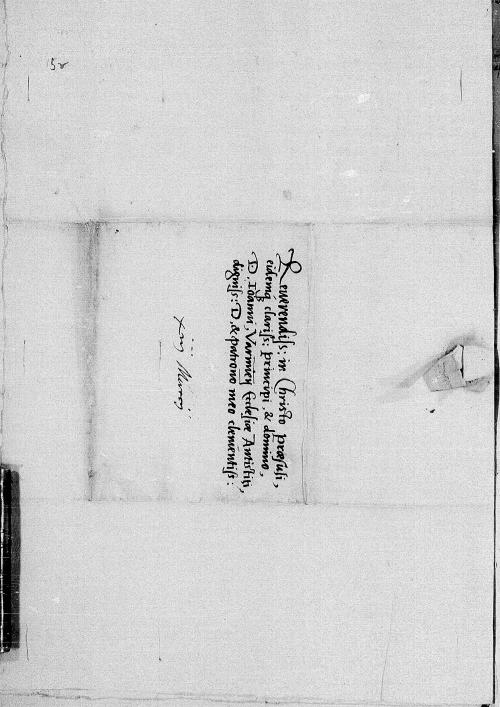 Reverendiss: in Christo præsuli,
eidemq clariss: principi, & domino,
D, Ioanni, Varmieñ Ecclesiæ Antistiti,
digniss: D, & patrono meo clementiss:
xiij Marcij